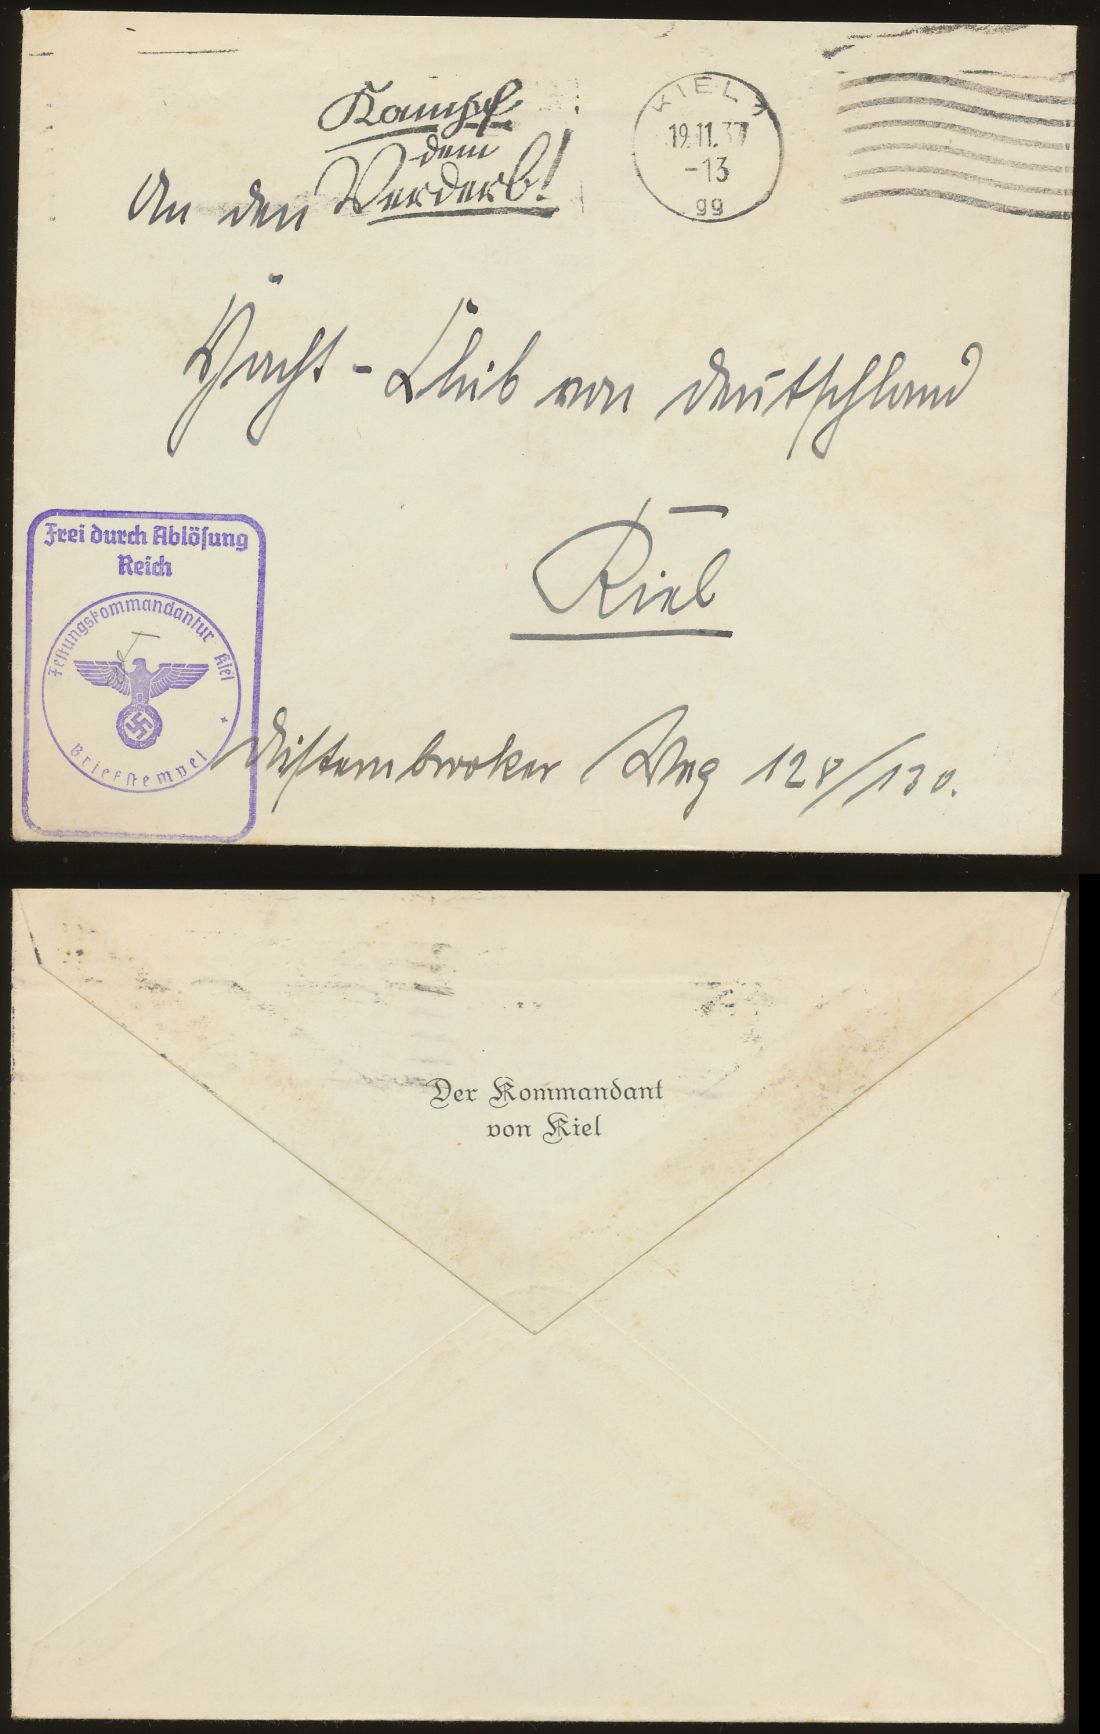 Kampf
dem
Verderb!
KIEL
19.11.37
-13
gg
An den
Yacht-Club von Deutschland
Kiel
Frei durch Ablösung
Reich
Festungskommandantur Kiel
Briefstempel
Düstembrooker Weg 128/130.
Der Kommandant
von Kiel